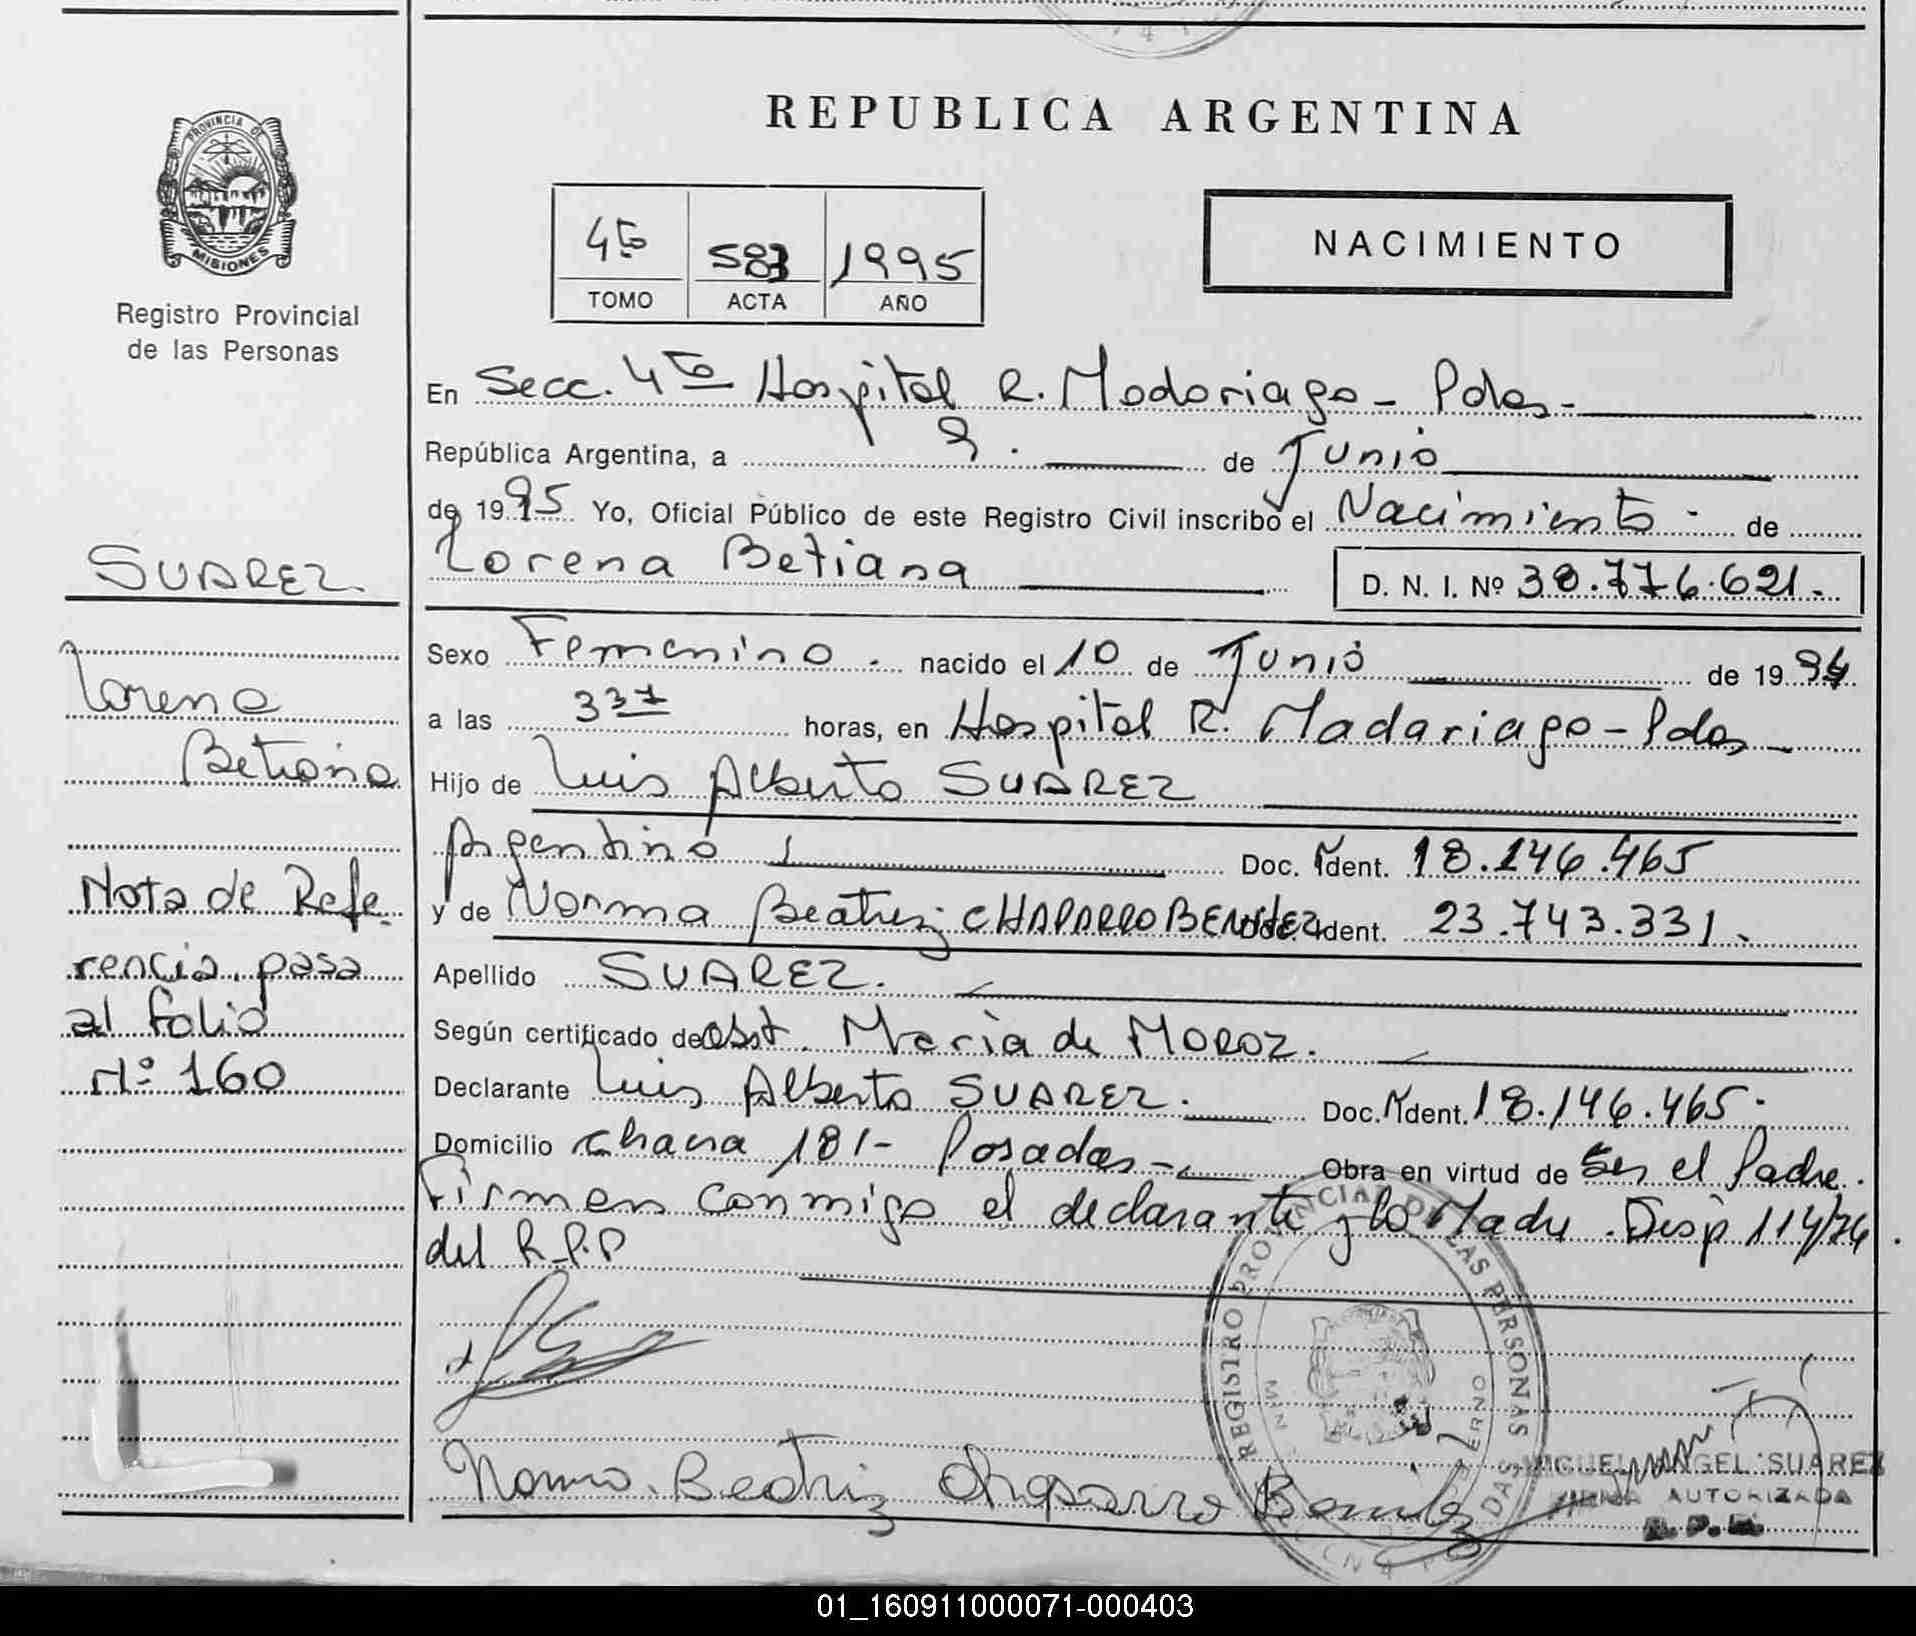 REPUBLICA ARGENTINA
PROVINCIA DE
MISIONES
Registro Provincial
de las Personas
4to 583 1995
TOMO ACTA AÑO
NACIMIENTO
En Secc. 4to Hospital R. Madariaga - Pdas -
República Argentina, a 9. de Junio
de 1995 Yo, Oficial Público de este Registro Civil inscribo el Nacimiento. de
Lorena Betiana D. N. I. Nº 38.776.621.-
SUAREZ.
Lorena
Betiana
Nota de Refe-
rencia pasa
al folio
Nº 160
Sexo Femenino. nacido el 10 de Junio de 1994
a las 3 horas, en Hospital R. Madariaga - Pdas -
Hijo de Luis Alberto SUAREZ
Argentino Doc. Ident. 18.146.465
y de Norma Beatriz CHAPARRO BENITEZ Doc. Ident. 23.743.331.
Apellido SUAREZ.
Según certificado de obst. Maria de MOROZ.
Declarante Luis Alberto SUAREZ. Doc. Ident. 18.146.465.
Domicilio chacra 181 - Posadas - Obra en virtud de Ser el Padre.
Firman conmigo el declarante y la Madre. Disp 114/74
del R.P.P
Norma Beatriz Chaparro Benitez
REGISTRO PROVINCIAL DE LAS PERSONAS
MIGUEL ANGEL SUAREZ
FIRMA AUTORIZADA
R.P.P.
01_160911000071-000403